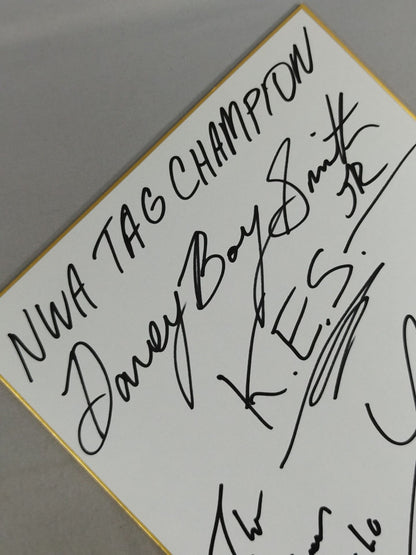 NWA TAG CHAMPION
Davey Boy Smith
JR
K.E.S.
The